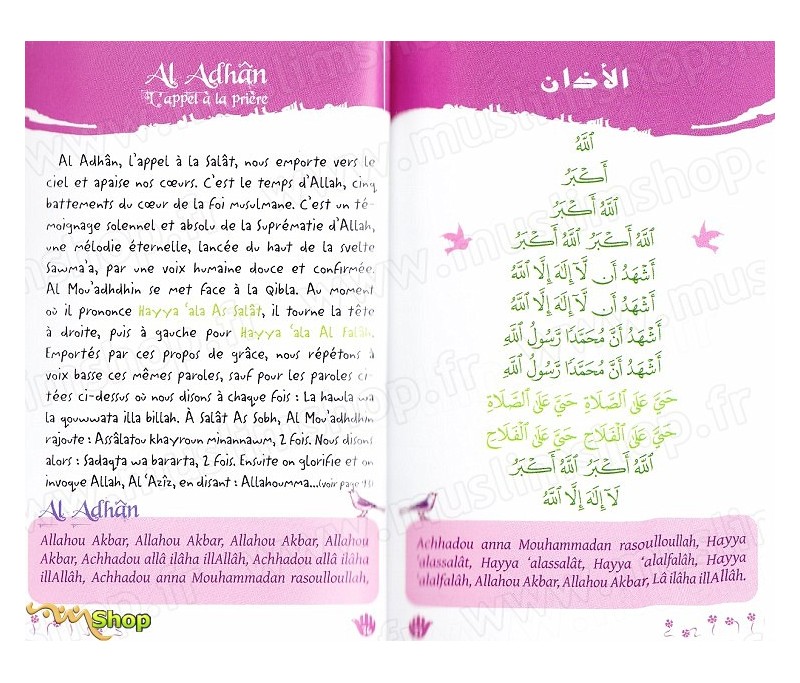 Al Adhân
L'appel à la prière
Al Adhân, l'appel à la Salât, nous emporte vers le
ciel et apaise nos cœurs. C'est le temps d'Allah, cinq
battements du cœur de la foi musulmane. C'est un té-
moignage solennel et absolu de la Suprématie d'Allah,
une mélodie éternelle, lancée du haut de la svelte
Sawma'a, par une voix humaine douce et confirmée.
Al Mou'adhdhin se met face à la Qibla. Au moment
où il prononce Hayya 'ala As Salât, il tourne la tête
à droite, puis à gauche pour Hayya 'ala Al Falâh.
Emportés par ces propos de grâce, nous répétons à
voix basse ces mêmes paroles, sauf pour les paroles ci-
tées ci-dessus où nous disons à chaque fois : La hawla wa
la qouwwata illa billah. À Salât As Sobh, Al Mou'adhdhin
rajoute : Assâlatou khayroun minannawm, 2 fois. Nous disons
alors : Sadaqta wa bararta, 2 fois. Ensuite on glorifie et on
invoque Allah, Al 'Azîz, en disant : Allahoumma...(voir page
Al Adhân
Allahou Akbar, Allahou Akbar, Allahou Akbar, Allahou
Akbar, Achhadou allâ ilâha illAllâh, Achhadou allâ ilâha
illAllâh, Achhadou anna Mouhammadan rasoulloullah,
Shop
الأذان
ٱللَّهُ
أَكْبَرُ
ٱللَّهُ أَكْبَرُ
ٱللَّهُ أَكْبَرُ ٱللَّهُ أَكْبَرُ
أَشْهَدُ أَن لَّا إِلَهَ إِلَّا ٱللَّهُ
أَشْهَدُ أَن لَّا إِلَهَ إِلَّا ٱللَّهُ
أَشْهَدُ أَنَّ مُحَمَّدًا رَّسُولُ ٱللَّهِ
أَشْهَدُ أَنَّ مُحَمَّدًا رَّسُولُ ٱللَّهِ
حَيَّ عَلَى ٱلصَّلَاةِ حَيَّ عَلَى ٱلصَّلَاةِ
حَيَّ عَلَى ٱلْفَلَاحِ حَيَّ عَلَى ٱلْفَلَاحِ
ٱللَّهُ أَكْبَرُ ٱللَّهُ أَكْبَرُ
لَا إِلَهَ إِلَّا ٱللَّهُ
Achhadou anna Mouhammadan rasoulloullah, Hayya
'alassalât, Hayya 'alassalât, Hayya 'alalfalâh, Hayya
'alalfalâh, Allahou Akbar, Allahou Akbar, Lâ ilâha illAllâh.
www.muslimshop.fr